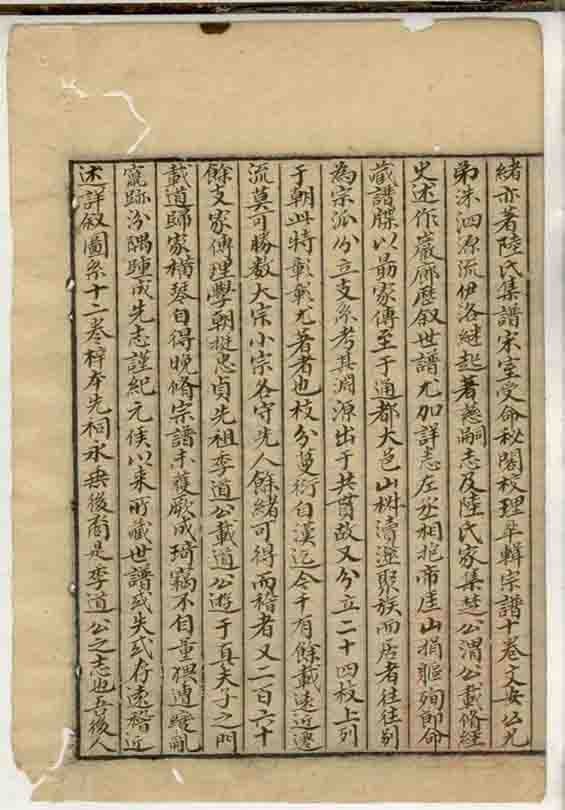 緒亦著陸氏集譜宋室受命秘閣校理卒輯宗譜十卷文安公兄
弟洙泗源流伊洛繼起著慈嗣志及陸氏家集楚公渭公載脩經
史述作巖廊歷叙世譜尤加詳志左丞相抱帝厓山捐軀殉節命
藏譜牒以勗家傳至于通都大邑山樹瀆澨聚族而居者往往别
為宗派分立支系考其淵源出于共貫故又分立二十四枝上列
于朝此特彰彰尤著者也枝分蔓衍自漢迄今千有餘載遠近遷
流莫可勝数大宗小宗各守先人餘緒可得而稽者又二百六十
餘支家傳理學朝挺忠貞先祖季道公載道公遊于真夫子之門
載道歸家横琴自得晚脩宗譜未獲厥成琦竊不自量猥遭變亂
竄跡汾隅踵成先志謹紀元侯以来所藏世譜或失或存遠稽近
述詳叙圖系十二卷梓夲先祠永垂後裔是季道公之志也吾後人